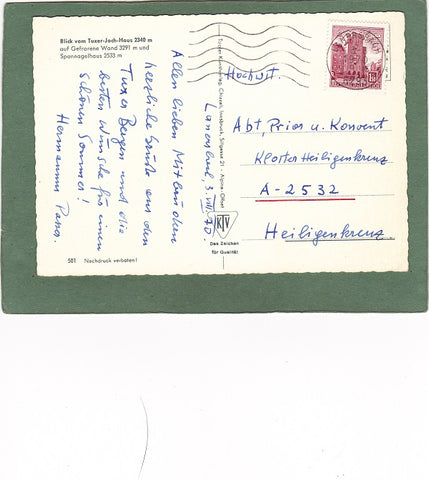 Blick vom Tuxer-Joch-Haus 2340 m
auf Gefrorene Wand 3291 m und
Spannagelhaus 2533 m
Lanersbach, 3. VIII. 70.
Allen lieben Mitbrüdern
herzliche Grüße aus den
Tuxer Bergen und die
besten Wünsche für einen
schönen Sommer!
Hermannus Pars.
501 Nachdruck verboten!
Tuxer Kunstverlag, Innsbruck,
KTV
Das Zeichen
für Qualität
Hochwst.
Abt, Prior u. Konvent
Kloster Heiligenkreuz
A-2532
Heiligenkreuz